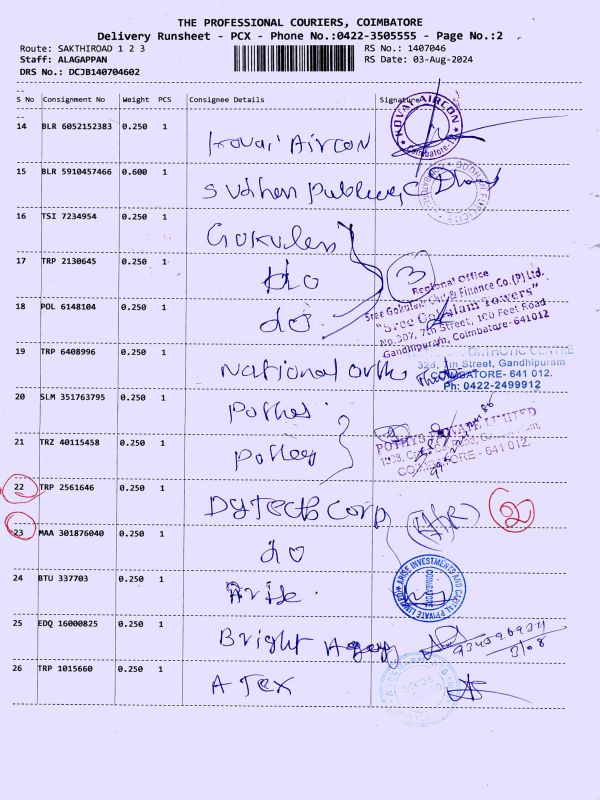 THE PROFESSIONAL COURIERS, COIMBATORE
Delivery Runsheet - PCX - Phone No.:0422-3505555 - Page No.:2
Route: SAKTHIROAD 1 2 3
RS No.: 1407046
Staff: ALAGAPPAN
RS Date: 03-Aug-2024
DRS No.: DCJB140704602
S No Consignment No Weight PCS Consignee Details Signature
KOVAI AIRCON
Coimbatore
14 BLR 6052152383 0.250 1 Kovai Aircon
15 BLR 5910457466 0.600 1
16 TSI 7234954 0.250 1 Gokulam
17 TRP 2130645 0.250 1 do 3
Regional Office
Sree Gokulam Chit & Finance Co.(P) Ltd.
"Sree Gokulam Towers"
No.307, 7th Street, 100 Feet Road
Gandhipuram, Coimbatore- 641012
18 POL 6148104 0.250 1 do
19 TRP 6408996 0.250 1 National Orth
ORTHOTIC CENTRE
326, 7th Street, Gandhipuram
COIMBATORE- 641 012.
Ph: 0422-2499912
20 SLM 351763795 0.250 1 Pothes
POTHYS PRIVATE LIMITED
COIMBATORE - 641 012.
21 TRZ 40115458 0.250 1 Pothey
22 TRP 2561646 0.250 1 Dytech Corp 2
23 MAA 301876040 0.250 1 do
ARISE INVESTMENTS AND CAPITAL PRIVATE LIMITED
COIMBATORE
24 BTU 337703 0.250 1 Arise
25 EDQ 16000825 0.250 1 Bright Agency
26 TRP 1015660 0.250 1 A Tex